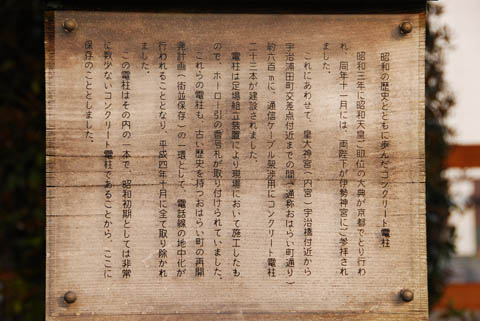 昭和の歴史とともに歩んだコンクリート電柱
昭和三年に昭和天皇ご即位の大典が京都でとり行わ
れ、同年十一月には、両陛下が伊勢神宮にご参拝され
ました。
これにあわせて、皇大神宮(内宮)宇治橋付近から
宇治浦田町交差点付近までの間(通称おはらい町通り)
約六百mに、通信ケーブル架渉用にコンクリート電柱
二十三本が建設されました。
電柱は足場組立装置により現場において施工したも
ので、ホーロー引の番号札が取り付けられていました。
これらの電柱も、古い歴史を持つおはらい町の再開
発計画(街並保存)の一環として、電話線の地中化が
行われることとなり、平成四年十月に全て取り除かれ
ました。
この電柱はその内の一本で、昭和初期としては非常
に数少ないコンクリート電柱であることから、ここに
保存のこととしました。